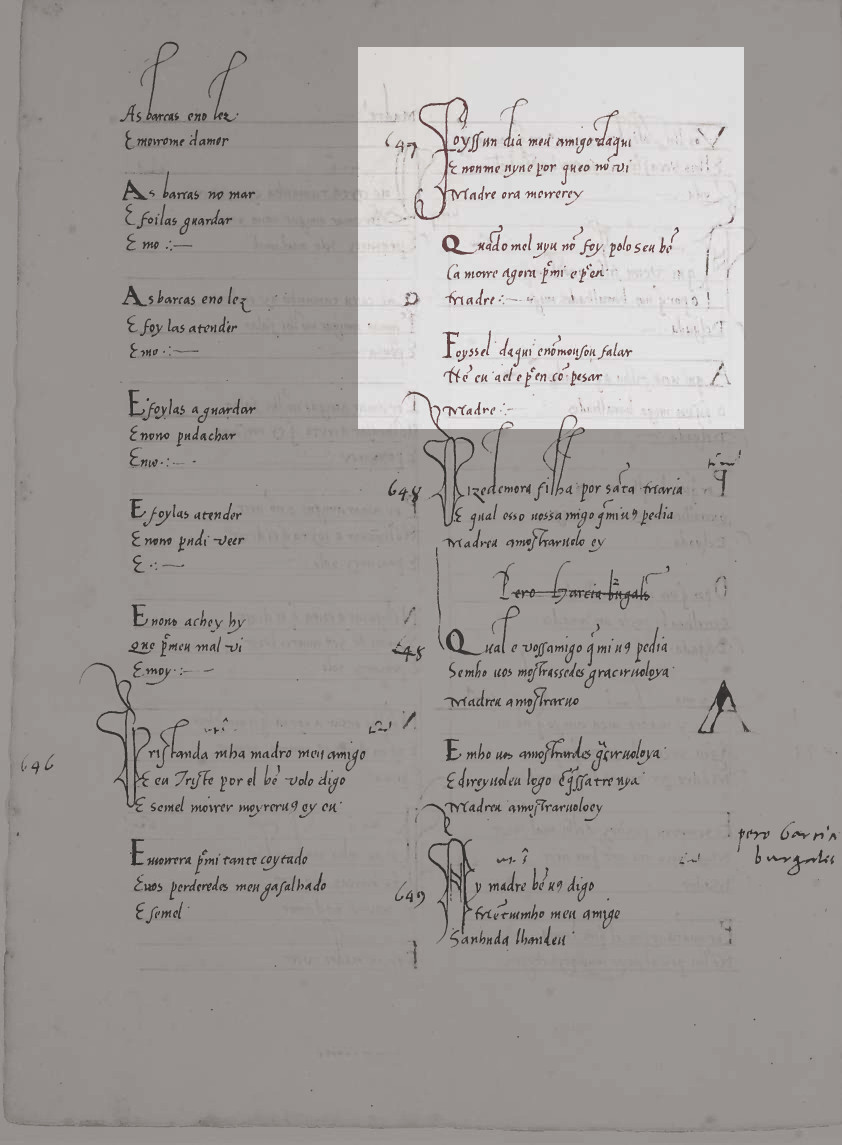 As barcas eno lez
E moirome damor
As barcas no mar
E foilas guardar
E mo
As barcas eno lez
E foy las atender
E mo
E foylas a guardar
E nono pudachar
E mo
E foylas atender
E nono pudi veer
E
E nono achey hy
Que pʳmeu mal vi
E moy
646
Pristanda mha madro meu amigo
E eu Triste por el bē volo digo
E semel moirer moyreruꝯ ey eu
E morrera pʳmi tante coytado
E vos perderedes meu gasalhado
E semel
647
Foyssun dia meu amigo daqui
E nonme uyue por queo nō vi
Madre ora morrerey
Quādo mel uyu nō foy polo seu bē
Ca morre agora pʳmi e pʳen
Madre
Foyssel daqui enōmousou falar
Nē eu ael e pʳen cō pesar
Madre
648
Dizedemora filha por sāta maria
E qual esso uossa migo q̄miuꝯ pedia
Madreu amostraruolo ey
Pero Garcia burgalꝭ
648
Qual e vossamigo q̄mi uꝯ pedia
Semho uos mostrassedes gracirvoloya
Madreu amostraruo
E mho uos amostrardes gʳcirvoloya
E direyuoleu lego
Madreu amostraruoloey
pero Garcia
burgales
649
Ay madre bē uꝯ digo
Mētiumho meu amigo
Sanhuda lhandeu